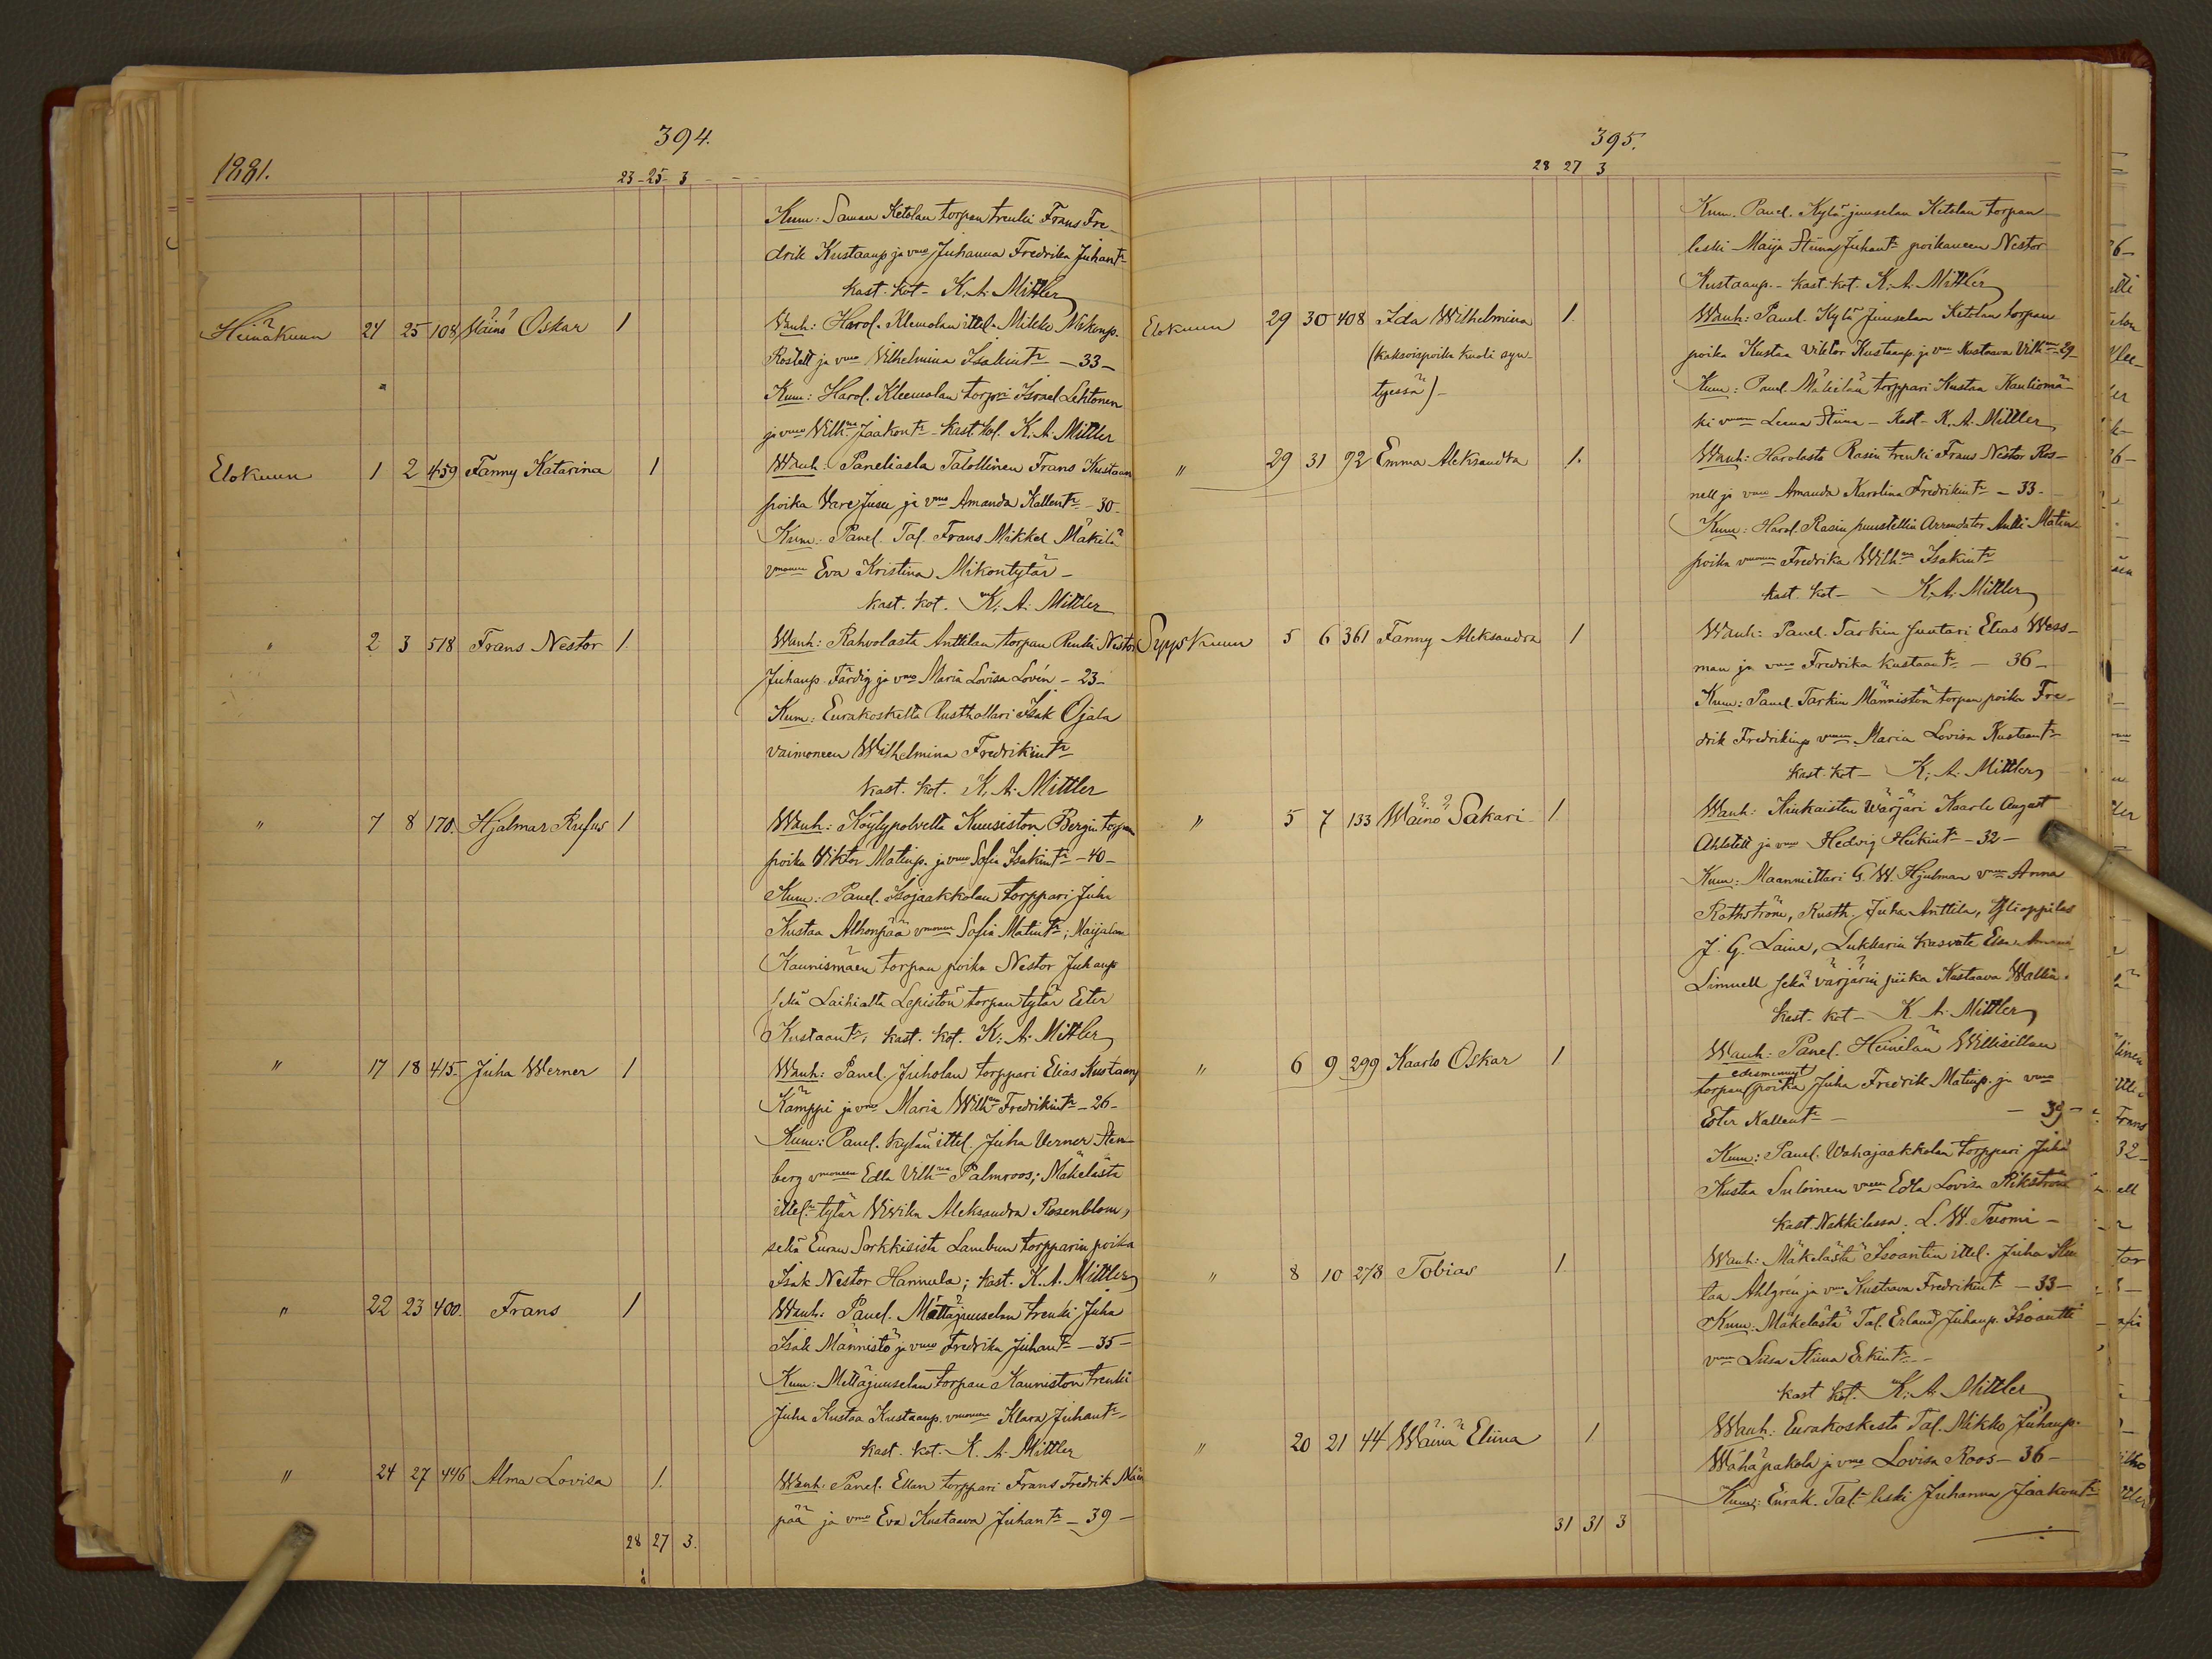 394.
1881.
23-25-3
Kum: Saman Ketolan torpan trenki Frans Fre-
drik Kustaanp ja vmo Juhanna Fredrika Juhantr
kast. kot- K. A. Mittler
Heinäkuun 24 25 108 Wäinö Oskar 1 Wanh: Harol. Klemolan ittel. Mikko
ja vmo Vilhelmina Isakintr - 33 -
Kum: Harol. Kleemolan torpri Israel Lehtonen
ja vmo Wilhna Jaakontr - kast. kot. K. A. Mittler
Elokuun 1 2 459 Fanny Katarina 1 Wanh: Paneliasta Talollinen Frans Kustaan
poika Vare Jusu ja vmo Amanda Kallentr - 30 -
Kum: Panel. Tal. Frans Mikkel Mäkilä
vmoneen Eva Kristina Mikontytär -
kast. kot. K. A. Mittler
" 2 3 518 Frans Nestor 1 Wanh: Rahvolasta Anttilan torpan Renki Nestor
Juhanp. Färdig ja vmo Maria Lovisa Lovén - 23 -
Kum: Eurakoskelta Rusthollari Isak Ojala
vaimoneen Wilhelmina Fredrikintr
kast. kot. K. A. Mittler
" 7 8 170. Hjalmar Rufus 1 Wanh: Köylypolvelta Kuusiston Bergin torpan
poika Viktor Matinp. ja vmo Sofia Isakintr - 40 -
Kum: Panel. Isojaakkolan torppari Juha
Kustaa Alhonpää vmoneen Sofia Matintr; Maijalan
Kaunismäen torpan poika Nestor Juhanp
sekä Laihialta Lepistön torpan tytär Ester
Kustaantr; kast. kot. K. A. Mittler
" 17 18 415. Juha Werner 1 Wanh: Panel. Juholan torppari Elias Kustaanp
Kamppi ja vmo Maria Wilhna Fredrikintr - 26 -
Kum: Panel. kylän ittel. Juha Verner Sten-
berg vmoneen Edla Vilhna Palmroos; Mäkelästä
ittel. tytär Wiwika Aleksandra Rosenblom,
sekä Euran Sorkkisista Lambun torpparin poika
Isak Nestor Hannula; kast. K. A. Mittler
" 22 23 400. Frans 1 Wanh: Panel. Mettäjuuselan trenki Juha
Isak Männistö ja vmo Fredrika Juhantr - 35 -
Kum: Mettäjuuselan torpan Kauniston trenki
Juha Kustaa Kustaanp. vmoneen Klara Juhantr
kast. kot. K. A. Mittler
" 24 27 446 Alma Lovisa 1. Wanh: Panel. Ellan torppari Frans Fredrik
pää ja vmo Eva Kustaava Juhantr - 39 -
28 27 3.
395.
28 27 3
Kum. Panel. Kylä-juuselan Ketolan torpan
leski Maija Stiina Juhantr poikaneen Nestor
Kustaanp. - kast. kot. K. A. Mittler
Elokuun 29 30 408 Ida Wilhelmina 1. Wanh: Panel. Kylä Juuselan Ketolan torpan
(kaksoispoika kuoli syn- poika Kustaa Viktor Kustaanp. ja vmo Kustaava Vilhna 29 -
tyessä) - Kum: Panel. Mäkelän torppari Kustaa Kautiomä-
ki Leena Stiina - Kast - K. A. Mittler
" 29 31 92 Emma Aleksandra 1. Wanh: Harolasta Rasin trenki Frans Nestor Ros-
nell ja vmo Amanda Karolina Fredrikintr - 33 -
Kum: Harol. Rasin puustellin Arrendator Antti Matin-
poika vmoneen Fredrika Wilhna Isakintr
kast. kot - K. A. Mittler
Syyskuun 5 6 361 Fanny Aleksandra 1 Wanh: Panel. Tarkin Juutari Elias Wess-
man ja vmo Fredrika Kustaantr - 36 -
Kum: Panel. Tarkin Männistön torpan poika Fre-
drik Fredrikinp Maria Lovisa Kustaantr
kast. kot - K. A. Mittler
" 5 7 133 Wäinö Sakari 1. Wanh: Kiukaisten Wärjäri Kaarle August
Ahlstett ja vmo Hedvig Heikintr - 32 -
Kum: Maanmittari G. W. Hjulman Anna
Rothström, Rusth. Juha Anttila, Ylioppilas
J. G. Laine, Lukkarin kasvate
Limnell sekä värjärin piika Kustaava Wallin.
kast. kot - K. A. Mittler
" 6 9 299 Kaarlo Oskar 1 Wanh: Panel. Heinilän Willisillan
edesmennyt
torpan poika Juha Fredrik Matinp. ja vmo
Ester Kallentr - - 39 -
Kum: Panel. Wähäjaakkolan torppari Juha
Kustaa Suloinen Edla Lovisa
kast. Nakkilassa. L. W. Tuomi -
" 8 10 278 Tobias 1. Wanh: Mäkelästä Isoantin ittel. Juha Kus
taa Ahlgrén ja vmo Kustaava Fredrikintr - 33 -
Kum. Mäkelästä Tal. Erland Juhanp. Isoantti
Liisa Stiina Erkintr -
kast. kot. K. A. Mittler
" 20 21 44 Wäinä Eliina 1 Wanh: Eurakoskesta Tal. Mikko Juhanp.
Wähäpakola ja vmo Lovisa Roos - 36 -
Kum: Eurak. Tal. leski Juhanna Jaakontr
31 31 3